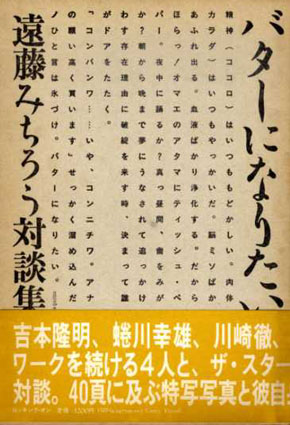 バターになりたい
精神(ココロ)はいつももどかしい。肉体
カラダ)はいつもやっかいだ。脳ミソばか
あふれ出る。血液ばかり浄化する。だから
ほらっ!オマエのアタマにティッシュ・ペ
パー。夜中に踊るか?真っ昼間、歯をみが
か?朝から晩まで夢にうなされて追っかけ
わす存在理由に破綻を来す時、決まって誰
がドアをたたく。
「コンバンワ……いや、コンニチワ。アナ
の願い高く買います」せっかく溜め込んだ
ノひと言は水づけ。バターになりたい。
遠藤みちろう対談集
吉本隆明、蜷川幸雄、川崎徹、
ワークを続ける4人と、ザ・スター
対談。40頁に及ぶ特写写真と彼自
ロッキング・オン 定価